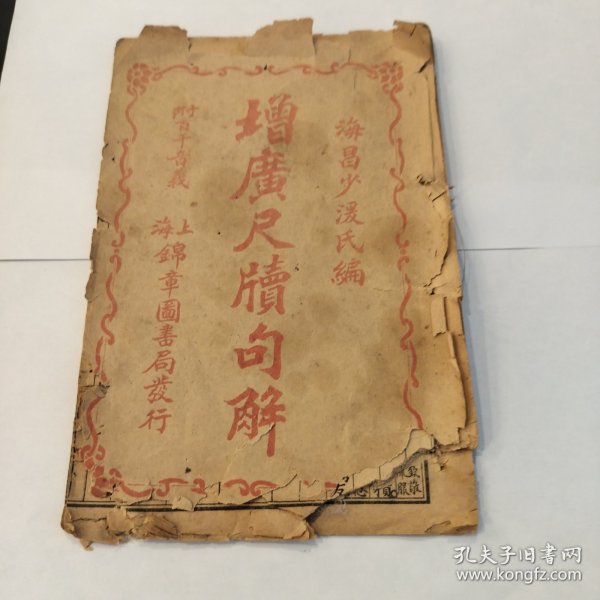 海昌少湲氏編
增廣尺牘句解
附百千音義
上海錦章圖書局發行
孔夫子旧书网
www.kongfz.com